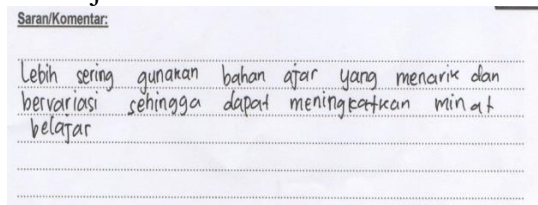 Saran/Komentar:
Lebih sering gunakan bahan ajar yang menarik dan
bervariasi sehingga dapat meningkatkan minat
belajar